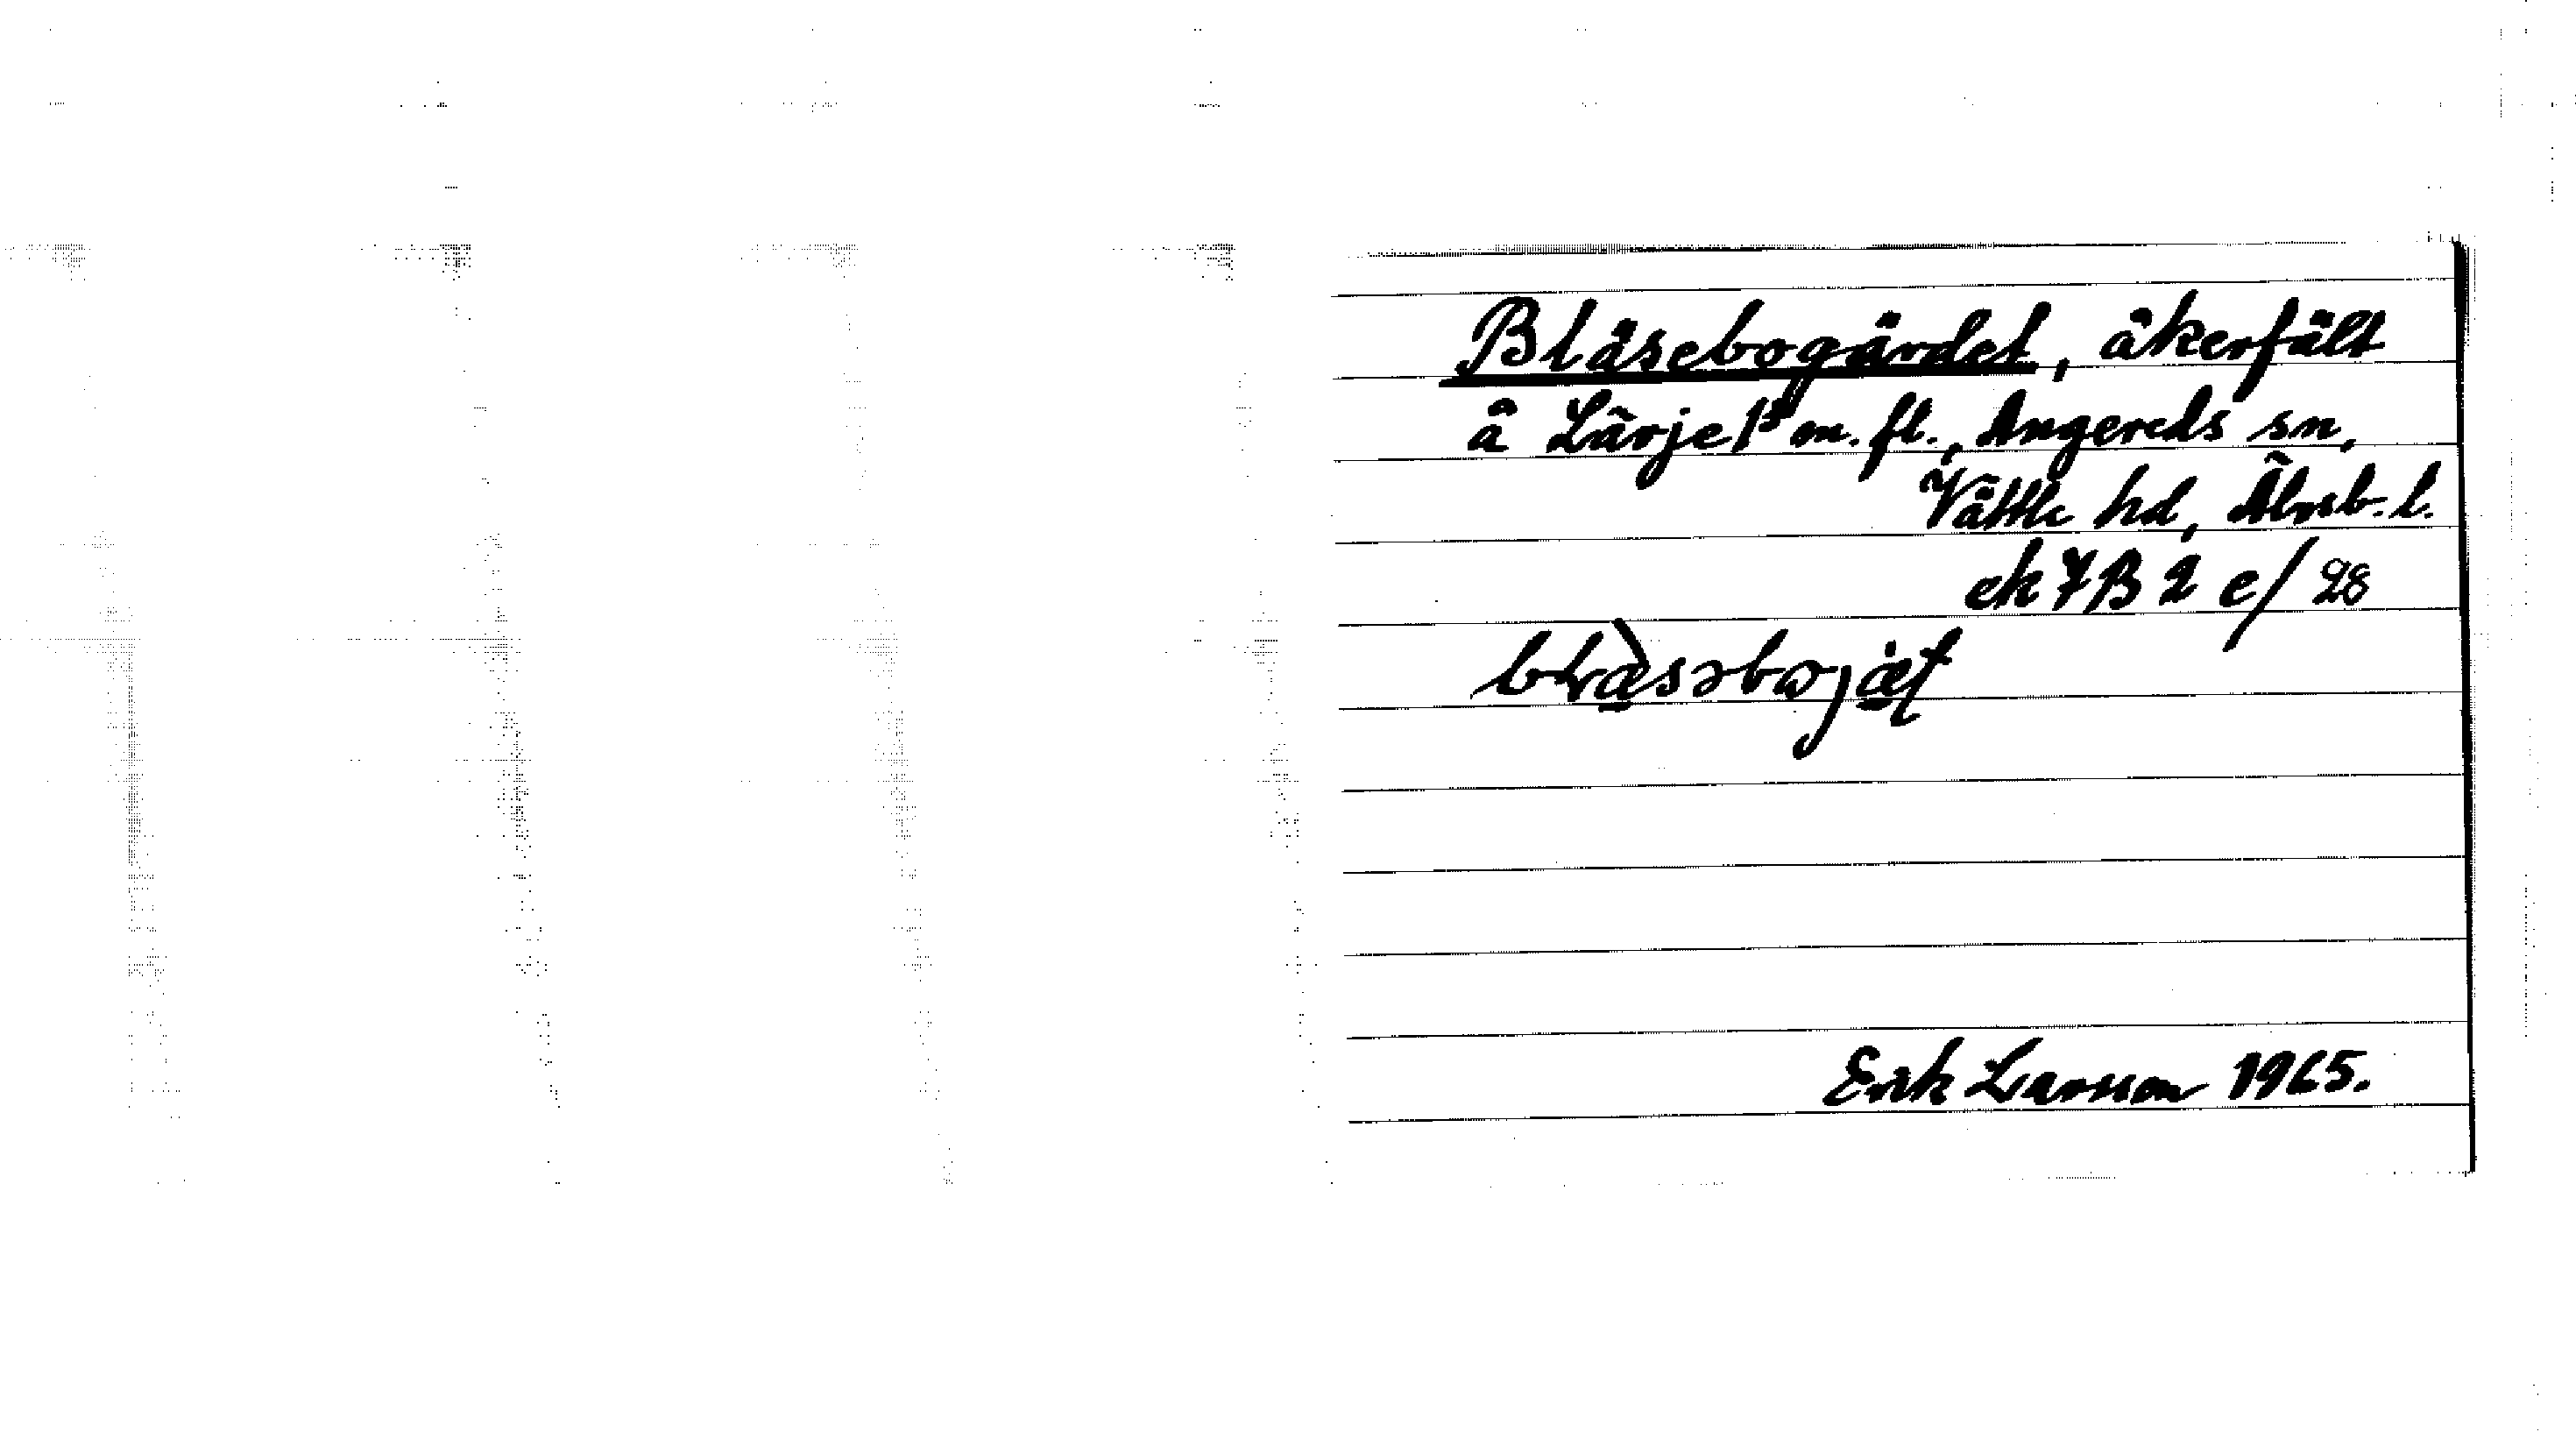 Bläsebogärdet, åkerfält
å Lärje 1³ m.fl., Angereds sn,
Vättle hd, Älvsb. l.
ek 7B 2 e/28
Erik Larsson 1965.